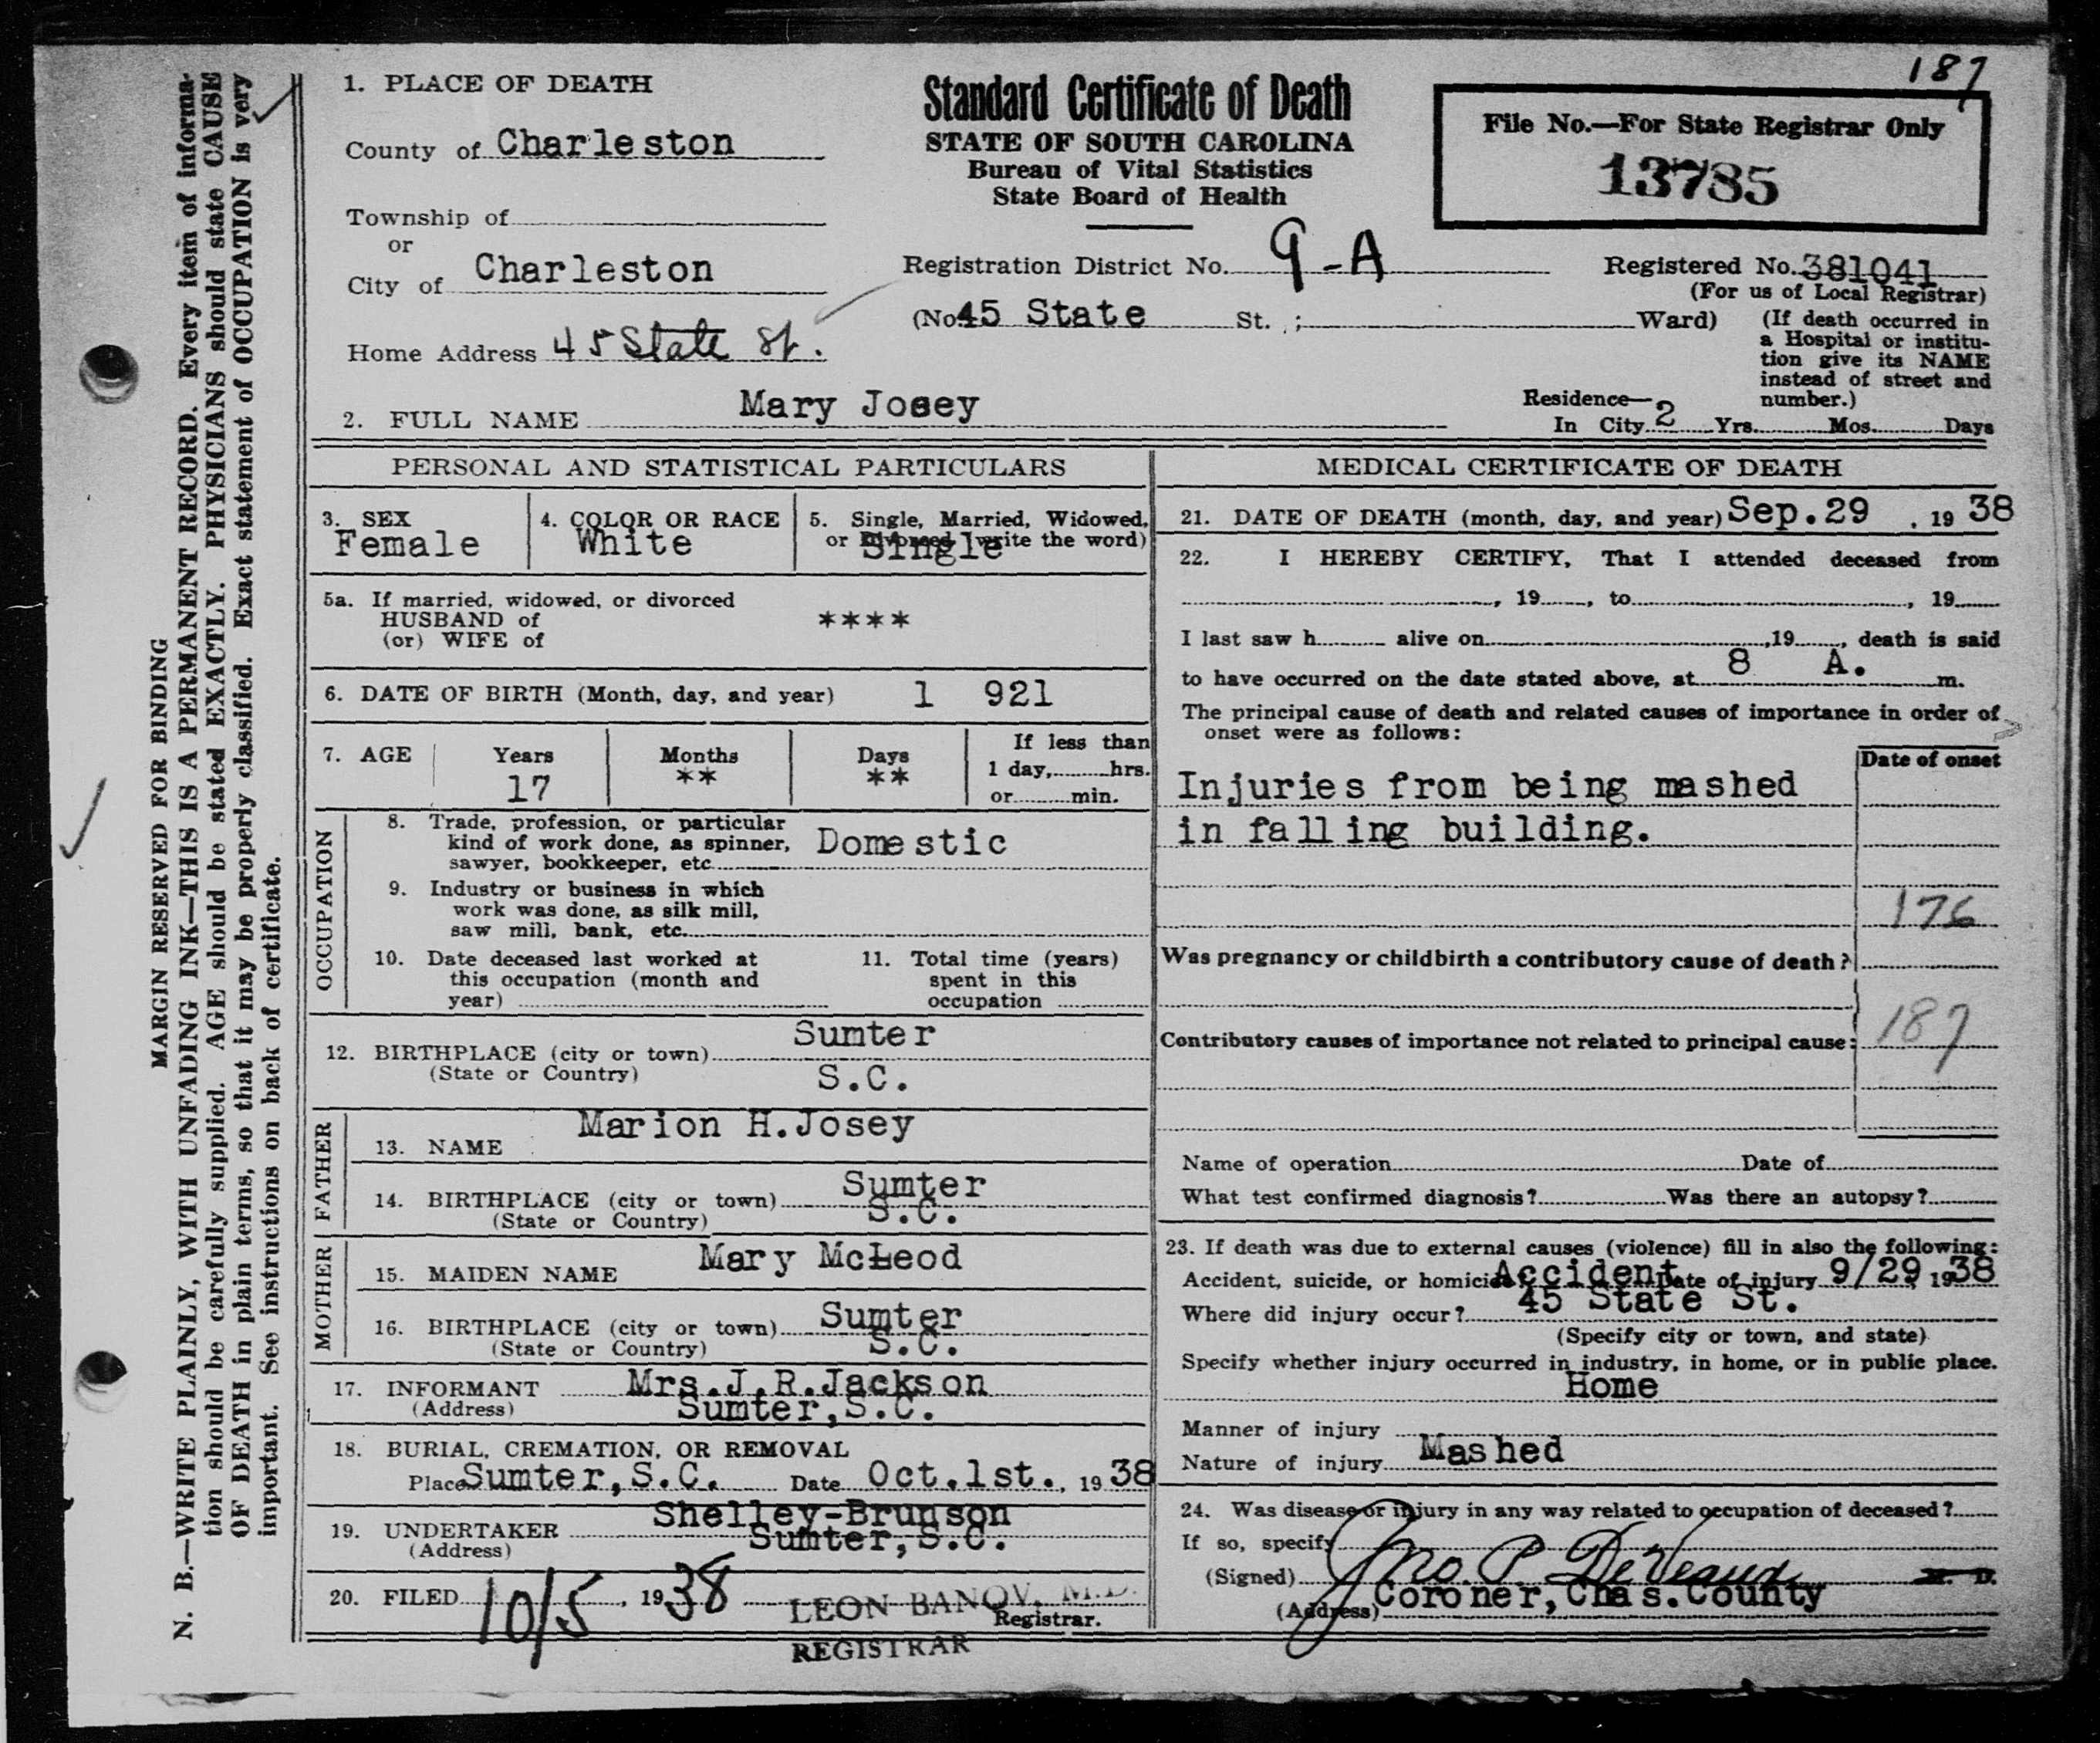 187
1. PLACE OF DEATH
County of Charleston
Township of
or
City of Charleston
Home Address 45 State St.
Standard Certificate of Death
STATE OF SOUTH CAROLINA
Bureau of Vital Statistics
State Board of Health
File No.—For State Registrar Only
13785
Registration District No. 9-A
Registered No. 381041
(For us of Local Registrar)
(No. 45 State St. ; Ward)
(If death occurred in
a Hospital or institu-
tion give its NAME
instead of street and
number.)
2. FULL NAME Mary Josey
Residence—
In City 2 Yrs. Mos. Days
PERSONAL AND STATISTICAL PARTICULARS
3. SEX
Female
4. COLOR OR RACE
White
5. Single, Married, Widowed,
or Divorced (write the word)
Single
5a. If married, widowed, or divorced
HUSBAND of
(or) WIFE of
****
6. DATE OF BIRTH (Month, day, and year) 1 921
7. AGE
Years
17
Months
**
Days
**
If less than
1 day, hrs.
or min.
OCCUPATION
8. Trade, profession, or particular
kind of work done, as spinner,
sawyer, bookkeeper, etc. Domestic
9. Industry or business in which
work was done, as silk mill,
saw mill, bank, etc.
10. Date deceased last worked at
this occupation (month and
year)
11. Total time (years)
spent in this
occupation
12. BIRTHPLACE (city or town) Sumter
(State or Country) S.C.
FATHER
13. NAME Marion H.Josey
14. BIRTHPLACE (city or town) Sumter
(State or Country) S.C.
MOTHER
15. MAIDEN NAME Mary McLeod
16. BIRTHPLACE (city or town) Sumter
(State or Country) S.C.
17. INFORMANT Mrs.J.R.Jackson
(Address) Sumter,S.C.
18. BURIAL, CREMATION, OR REMOVAL
Place Sumter,S.C. Date Oct.1st., 1938
19. UNDERTAKER Shelley-Brunson
(Address) Sumter,S.C.
20. FILED 10/5, 1938 LEON BANOV, M.D.
Registrar.
REGISTRAR
MEDICAL CERTIFICATE OF DEATH
21. DATE OF DEATH (month, day, and year) Sep.29, 1938
22. I HEREBY CERTIFY, That I attended deceased from
, 19 , to , 19
I last saw h alive on ,19 , death is said
to have occurred on the date stated above, at 8 A. m.
The principal cause of death and related causes of importance in order of
onset were as follows:
Date of onset
Injuries from being mashed
in falling building.
176
Was pregnancy or childbirth a contributory cause of death?
187
Contributory causes of importance not related to principal cause:
Name of operation Date of
What test confirmed diagnosis? Was there an autopsy?
23. If death was due to external causes (violence) fill in also the following:
Accident, suicide, or homicide Accident Date of injury 9/29, 1938
Where did injury occur? 45 State St.
(Specify city or town, and state)
Specify whether injury occurred in industry, in home, or in public place.
Home
Manner of injury
Nature of injury Mashed
24. Was disease or injury in any way related to occupation of deceased?
If so, specify
(Signed) Jno. P. DeVeaux M. D.
(Address) Coroner,Chas.County
MARGIN RESERVED FOR BINDING
N. B.—WRITE PLAINLY, WITH UNFADING INK—THIS IS A PERMANENT RECORD. Every item of informa-
tion should be carefully supplied. AGE should be stated EXACTLY. PHYSICIANS should state CAUSE
OF DEATH in plain terms, so that it may be properly classified. Exact statement of OCCUPATION is very
important. See instructions on back of certificate.